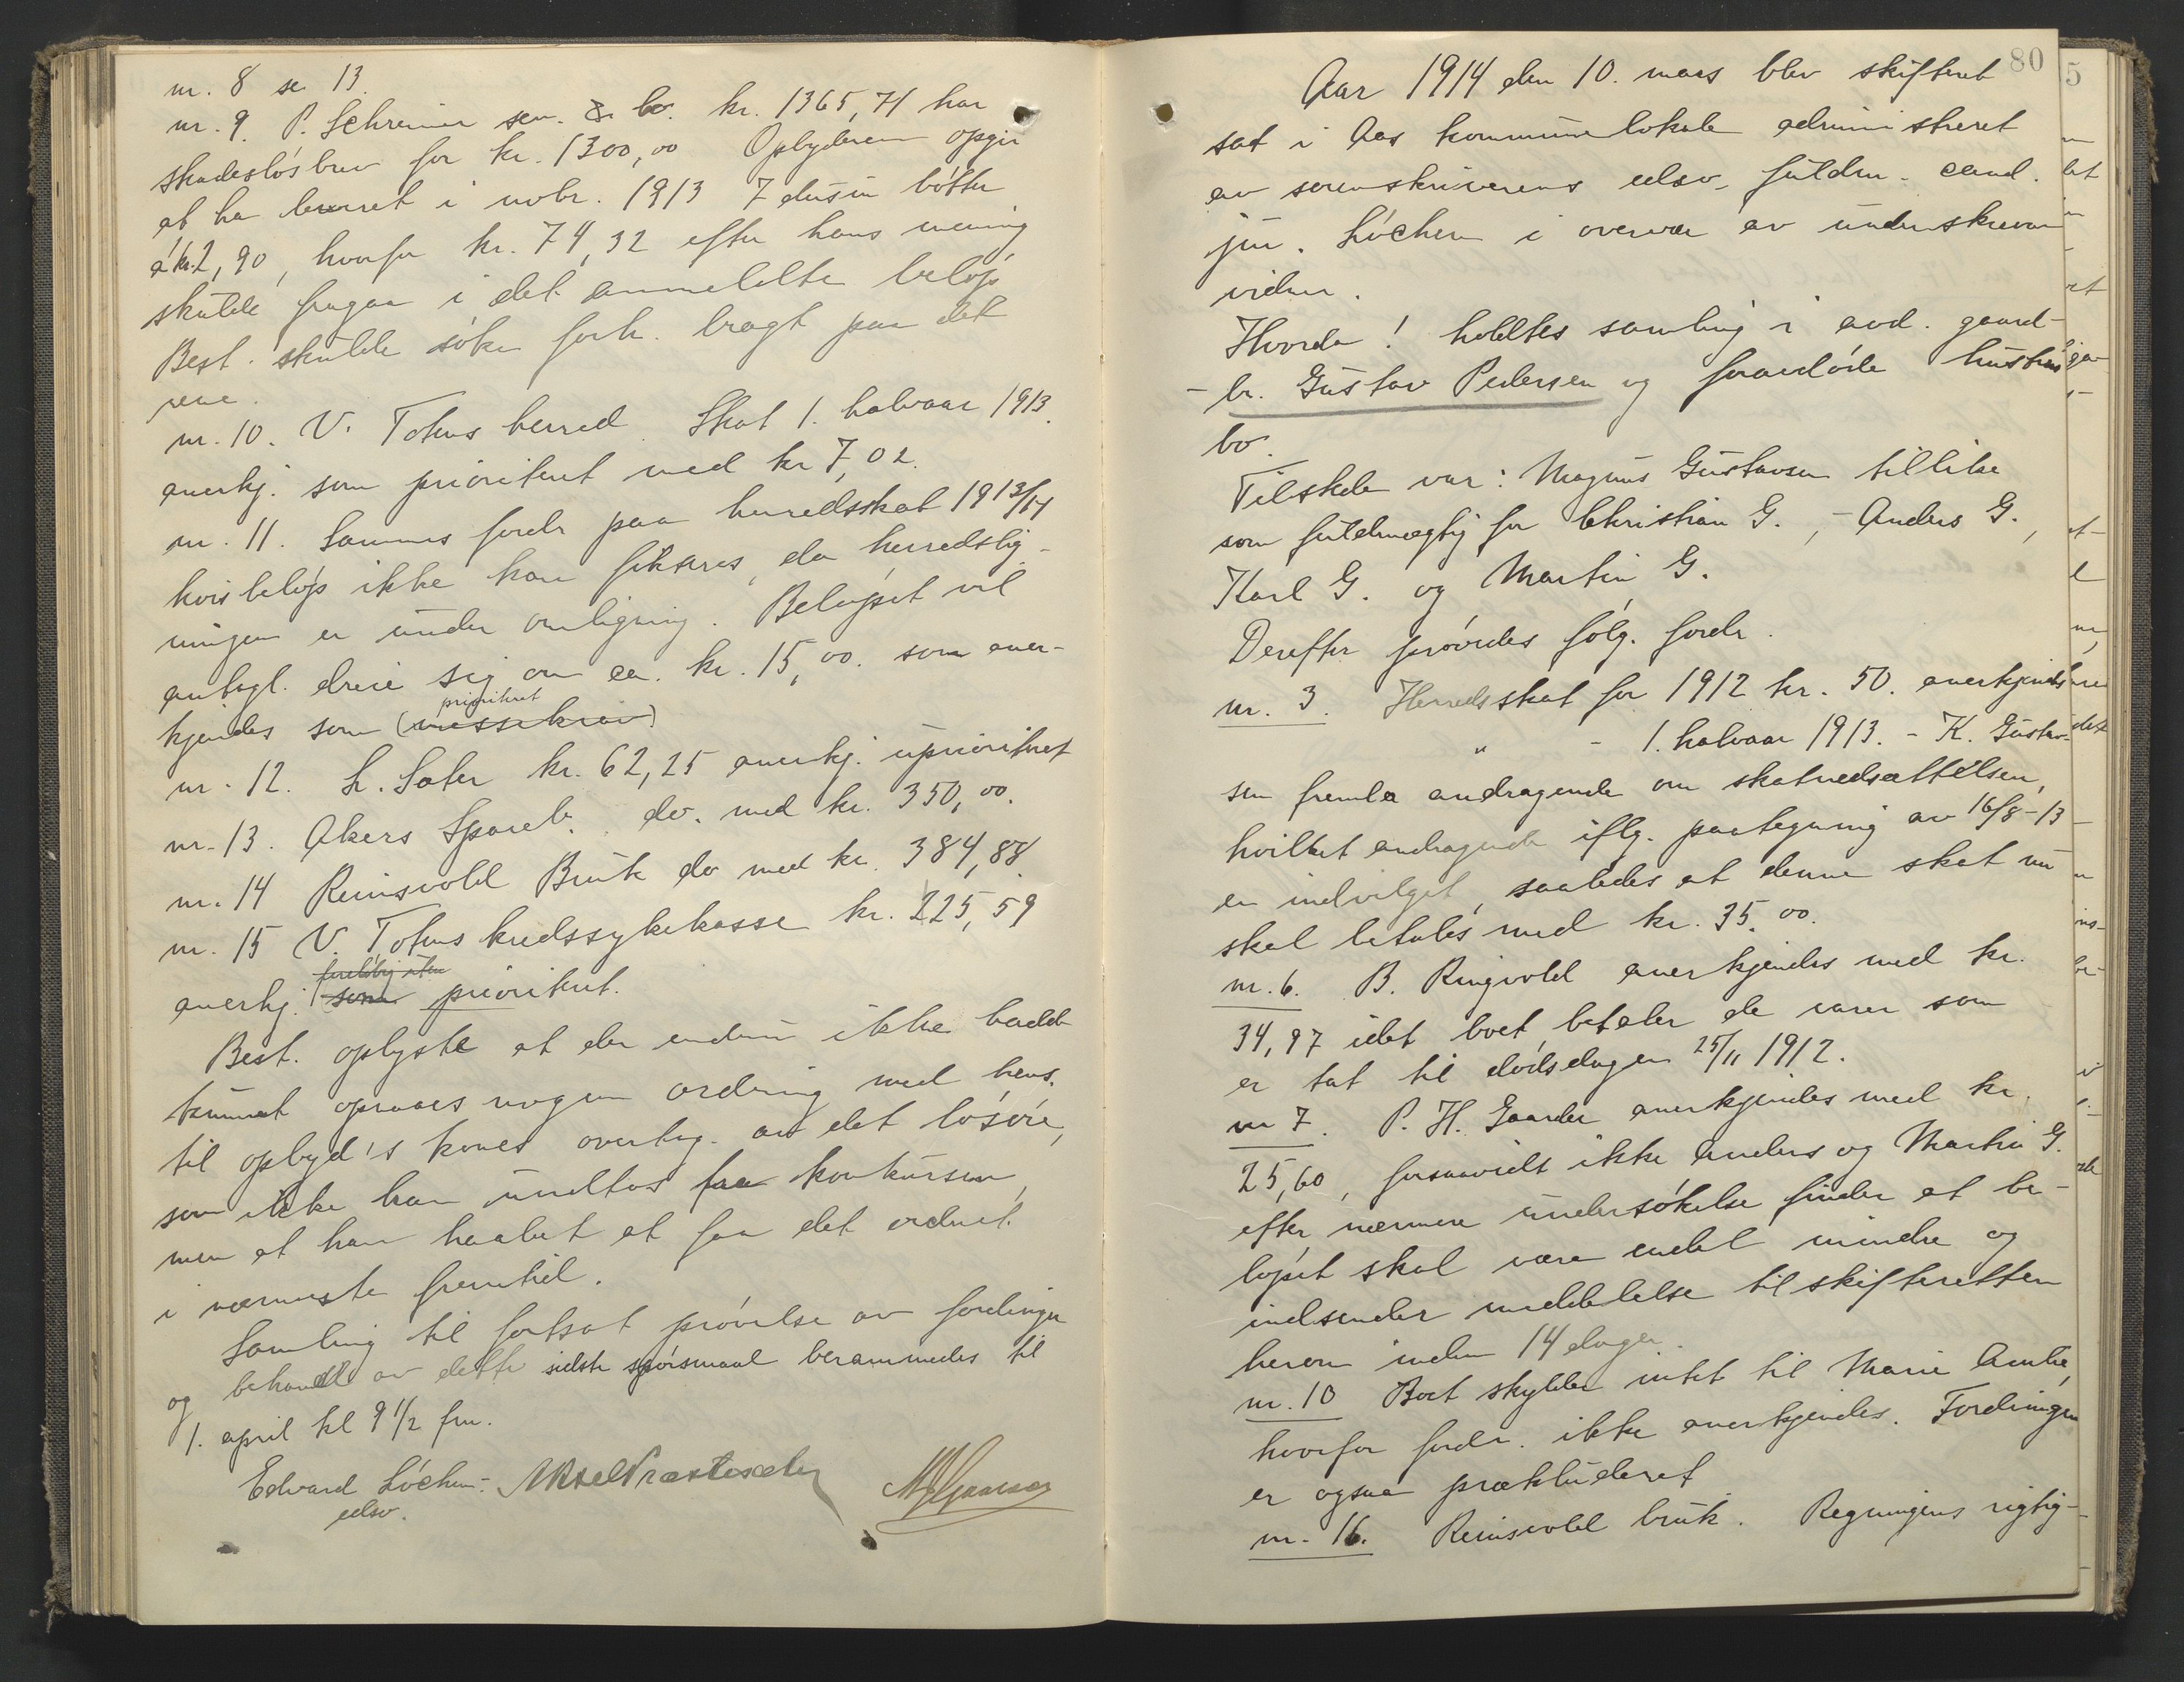 nr. 8 se 13.
nr. 9. P. Schreiner sen. & co. kr. 1365,71 har
skadesløsbrev for kr. 1300,00 Opbyderen opgir
at ha levert i novbr. 1913 7 dusin bøtter
á kr. 2,90, hvorfor kr. 74,32 efter hans mening
skulde fragaa i det anmeldte beløp
Best. skulde søke forh. bragt paa det
rene.
nr. 10. V. Totens herred. Skat 1. halvaar 1913.
anerkj. som prioritert med kr 7,02.
nr. 11. Sammes fordr paa herredsskat 1913/14
hvis beløp ikke kan fikseres, da herredslig-
ningen er under omligning. Beløpet vil
antagl. dreie sig om ca. kr. 15,00. som aner-
prioritert
kjendes som (massekrav)
nr. 12. L. Sater kr. 62,25 anerkj. uprioritert
nr. 13. Akers Spareb. do. med kr. 350,00.
nr. 14 Reinsvold Bruk do med kr. 384,88
nr. 15 V. Totens kredssykekasse kr. 225,59
foreløbig uten
anerkj. som prioritert.
Best. oplyste at der endnu ikke hadde
kunnet opnaaes nogen ordning med hens.
til opbyd's kones overtag. av det løsøre,
som ikke kan undtas fra konkursen,
men at han haabet at faa det ordnet
i nærmeste fremtid.
Samling til fortsat prøvelse av fordringer
og behandl av dette sidste spørsmaal berammedes til
1. april kl 9 1/2 fm.
Edvard Löchen.
edsv.
80
5
Aar 1914 den 10. mars blev skifteret
sat i Aas kommunelokale administreret
av sorenskriverens edsv. fuldm. cand.
jur. Löchen i overvær av underskrevne
vidner.
Hvorda! holdtes samling i avd. gaard-
br. Gustav Pedersen og foravdøde hustrus
bo.
Tilstede var: Magnus Gustavsen tillike
som fuldmægtig for Christian G., - Anders G.,
Karl G. og Martin G.
Derefter prøvdes følg. fordr.
nr. 3. Herredsskat for 1912 kr. 50. anerkjendes
" - 1. halvaar 1913. - K. Gustav-
sen fremla andragende om skatnedsættelsen,
hvilket andragende iflg. paategning av 16/8-13
er indvilget, saaledes at denne skat nu
skal betales med kr. 35,00.
nr. 6. B. Ringvold anerkjendes med kr.
34,97 idet boet betaler de varer som
er tat til dødsdagen 25/11 1912.
nr 7. P. H. Gaarder anerkjendes med kr.
25,60, forsaavidt ikke Anders og Martin G.
efter nærmere undersøkelse finder at be-
løpet skal være endel mindre og
indsender meddelelse til skifteretten
herom inden 14 dager.
nr. 10 Boet skylder intet til Marie
hvorfor fordr. ikke anerkjendes. Fordringen
er ogsaa prækluderet
nr. 16. Reinsvold bruk. Regningens rigtig-